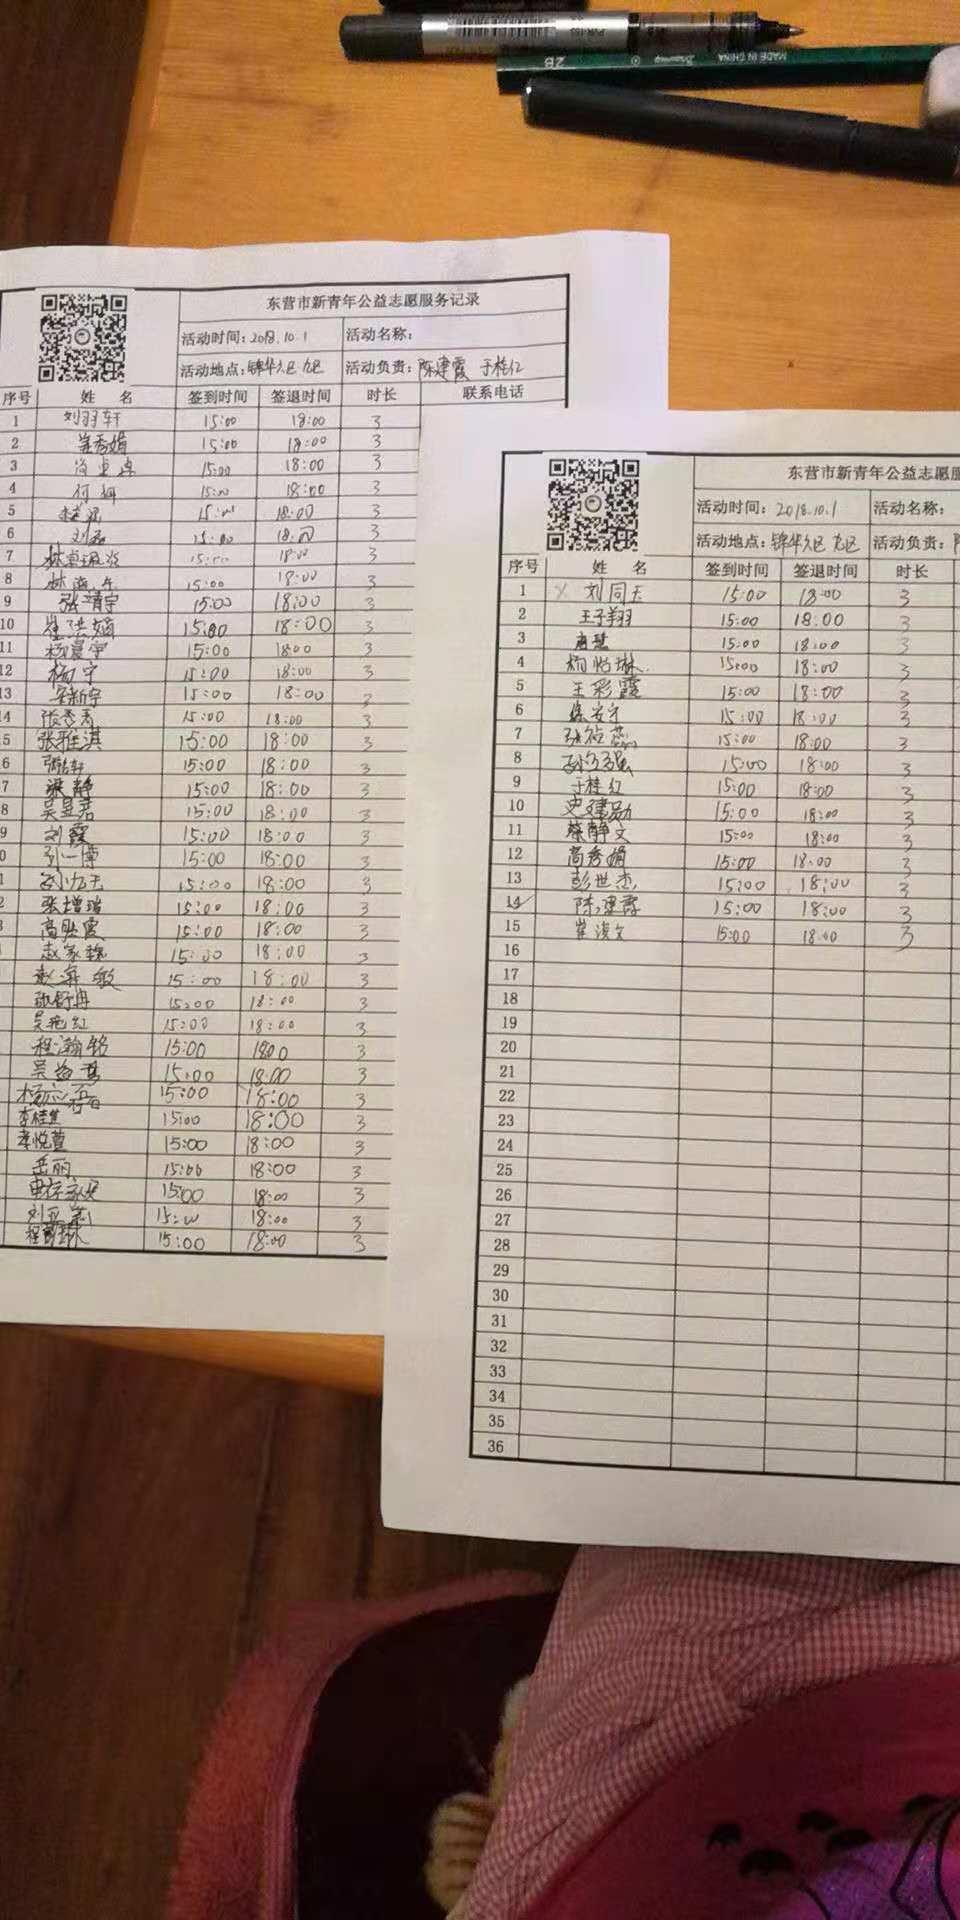 MADE IN CHINA
2B
东营市新青年公益志愿服务记录
活动时间：2018.10.1 活动名称：
活动地点：锦华九区 活动负责：陈建霞 于桂红
序号 姓 名 签到时间 签退时间 时长 联系电话
1 刘羽轩 15:00 18:00 3
2 崔秀娟 15:00 18:00 3
3 15:00 18:00 3
4 15:00 18:00 3
5 15:00 18:00 3
6 15:00 18:00 3
7 15:00 18:00 3
8 15:00 18:00 3
9 张靖宇 15:00 18:00 3
10 15:00 18:00 3
11 杨晨宇 15:00 18:00 3
12 杨宁 15:00 18:00 3
13 15:00 18:00 3
4 张秀春 15:00 18:00 3
5 张雅淇 15:00 18:00 3
6 15:00 18:00 3
7 梁静 15:00 18:00 3
8 吴昱君 15:00 18:00 3
9 刘霞 15:00 18:00 3
0 孙一博 15:00 18:00 3
1 15:00 18:00 3
2 张增瑞 15:00 18:00 3
3 15:00 18:00 3
赵家魏 15:00 18:00 3
赵海敏 15:00 18:00 3
张舒冉 15:00 18:00 3
吴艳红 15:00 18:00 3
程瀚铭 15:00 18:00 3
15:00 18:00 3
15:00 18:00 3
15:00 18:00 3
李悦萱 15:00 18:00 3
岳丽 15:00 18:00 3
15:00 18:00 3
15:00 18:00 3
15:00 18:00 3
东营市新青年公益志愿服
活动时间：2018.10.1 活动名称：
活动地点：锦华九区 活动负责：
序号 姓 名 签到时间 签退时间 时长
1 刘同天 15:00 18:00 3
2 王子翔 15:00 18:00 3
3 15:00 18:00 3
4 杨怡琳 15:00 18:00 3
5 王彩霞 15:00 18:00 3
6 徐安宁 15:00 18:00 3
7 15:00 18:00 3
8 15:00 18:00 3
9 于桂红 15:00 18:00 3
10 史建勋 15:00 18:00 3
11 蔡静文 15:00 18:00 3
12 高秀娟 15:00 18:00 3
13 彭世杰 15:00 18:00 3
14 陈建霞 15:00 18:00 3
15 崔俊文 15:00 18:00 3
16
17
18
19
20
21
22
23
24
25
26
27
28
29
30
31
32
33
34
35
36